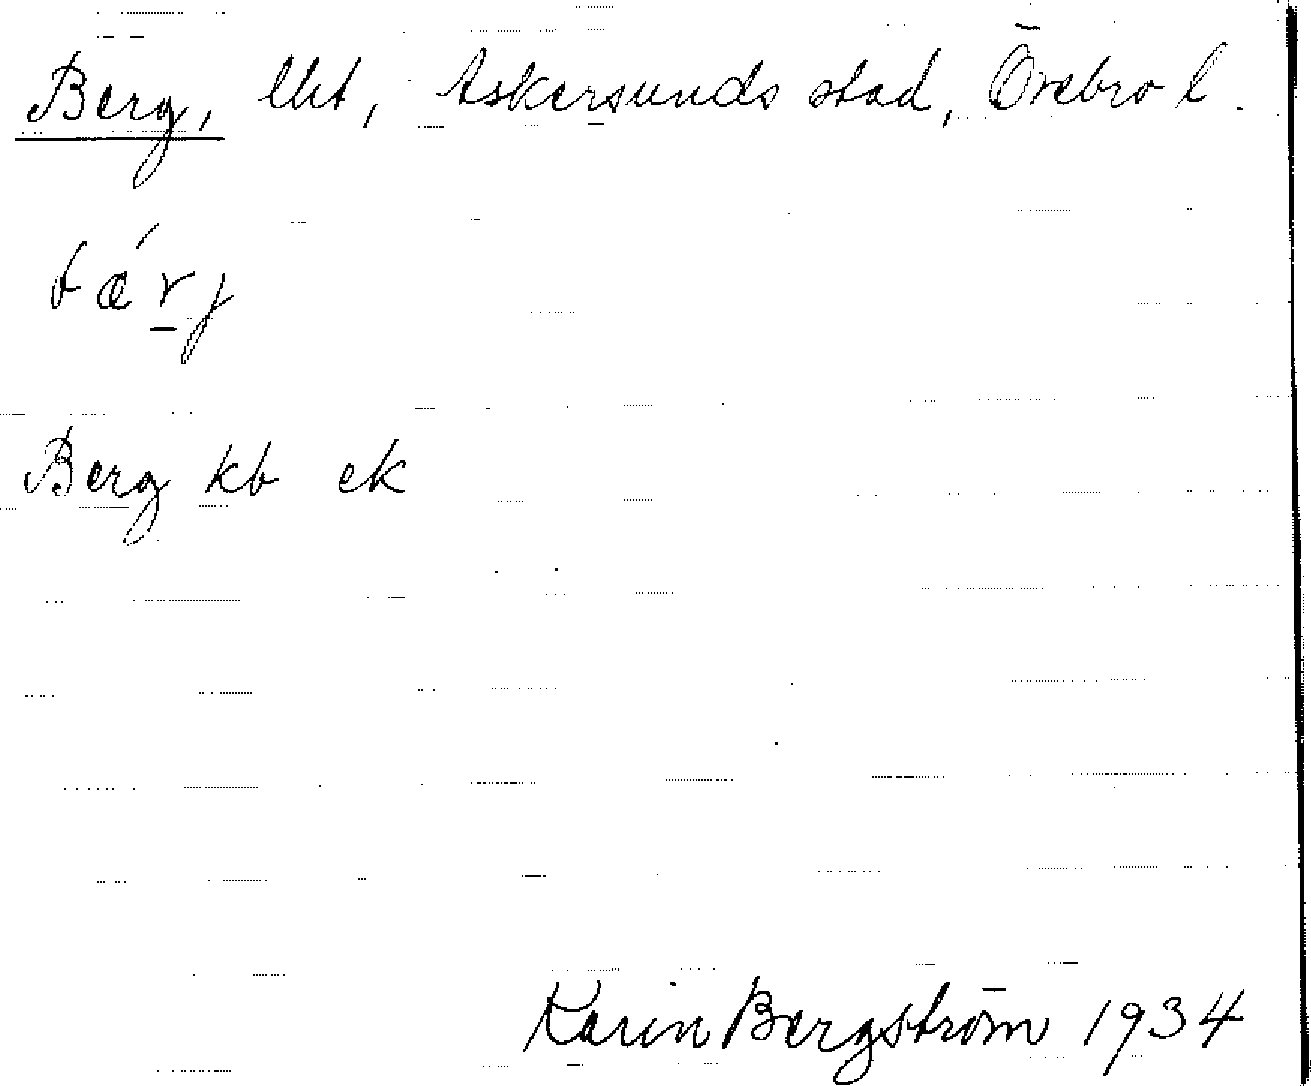 Berg, lht, Askersunds stad, Örebro l.
bæ´rj
Berg kb ek
Karin Bergström 1934